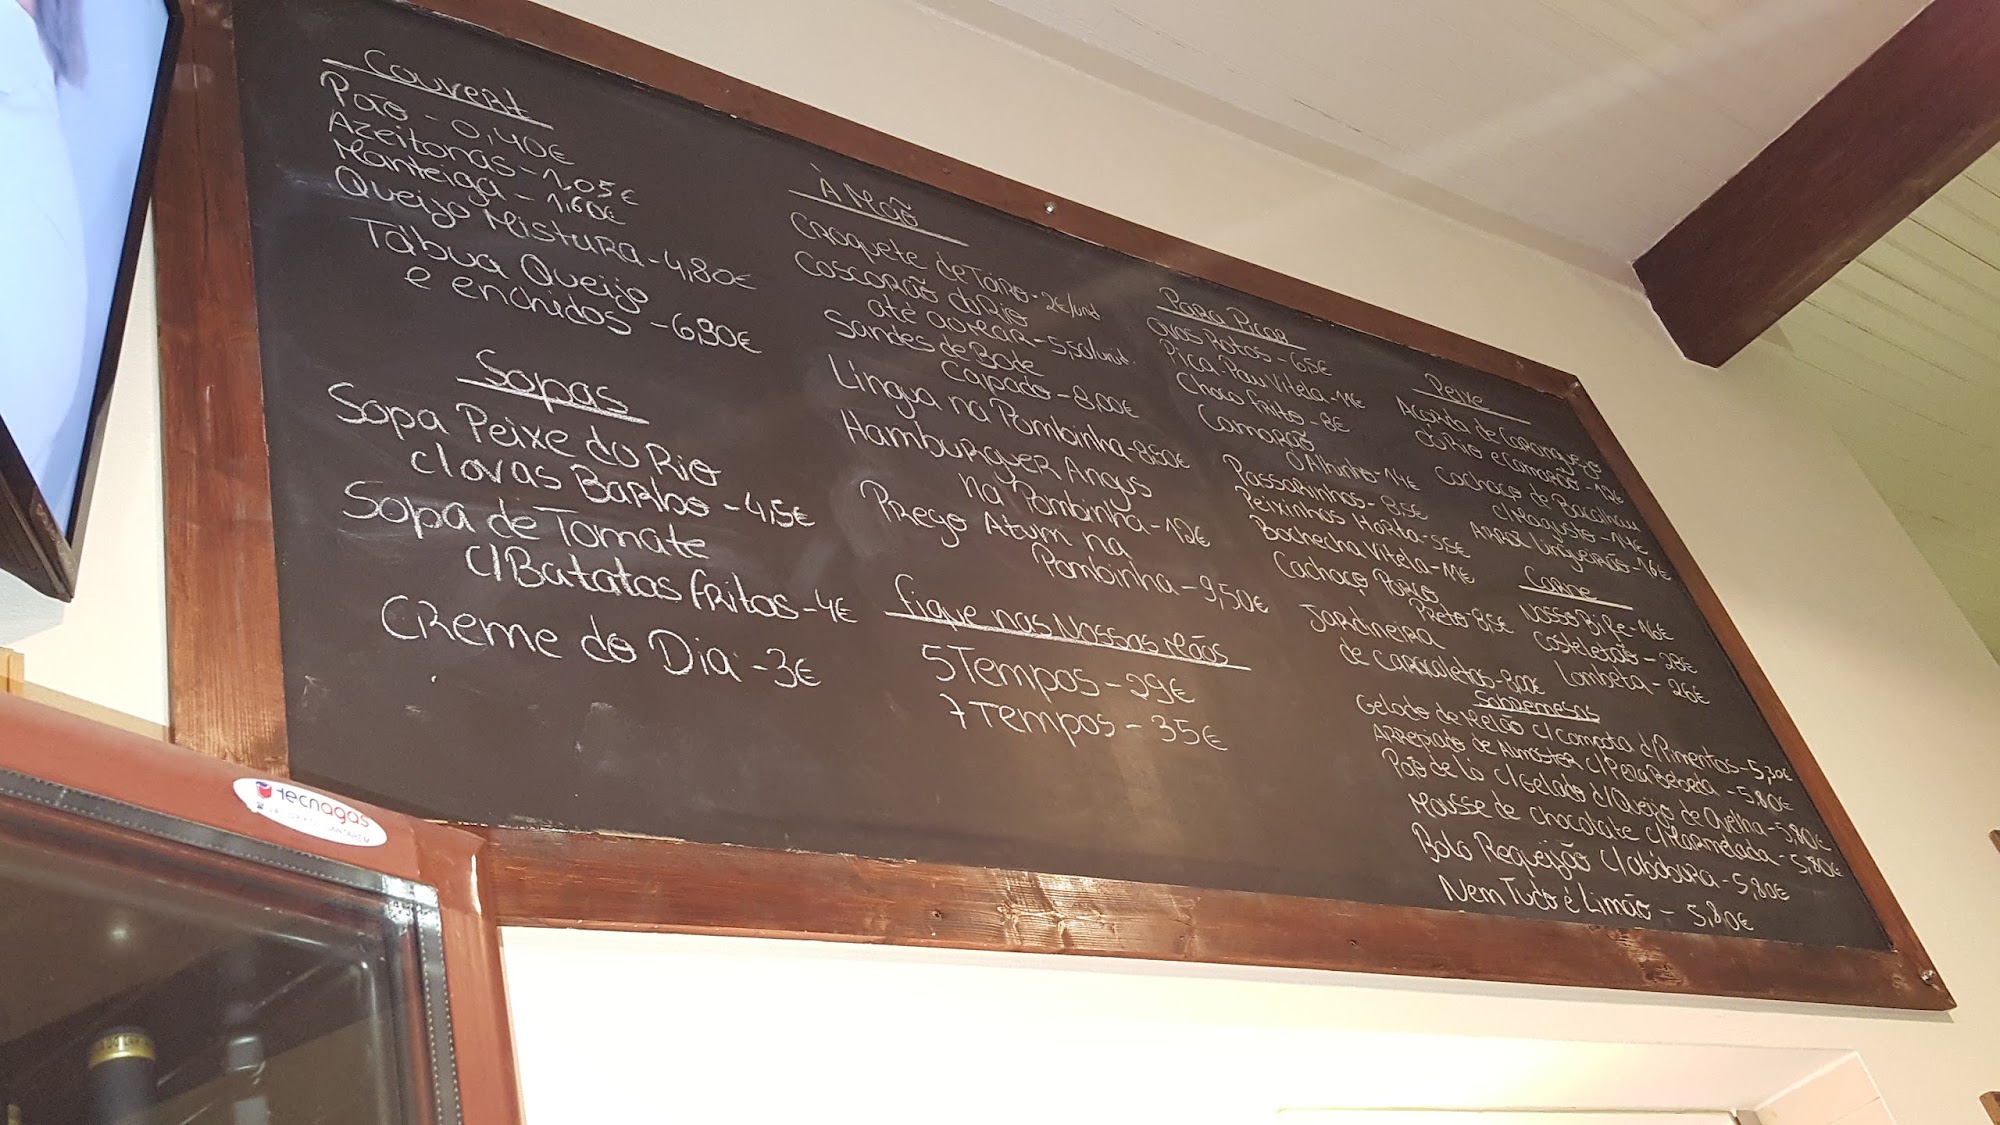 Couvert
Pão - 0,40€
Azeitonas - 1,05€
Manteiga - 1,60€
Queijo Mistura - 4,80€
Tábua Queijo
e enchidos - 6,90€
Sopas
Sopa Peixe do Rio
c/ovas Barbo - 4,5€
Sopa de Tomate
c/Batatas fritas - 4€
Creme do Dia - 3€
À Mão
Croquete de Toiro - 2€/und
Coscorão do Rio
até ao mar - 5,50/unid.
Sandes de Bode
Capado - 8,00€
Língua na Pombinha - 8,50€
Hamburguer Angus
na Pombinha - 12€
Prego Atum na
Pombinha - 9,50€
fique nas Nossas Mãos
5 Tempos - 29€
7 Tempos - 35€
Para Picar
Ovos Rotos - 6,5€
Pica-Pau Vitela - 11€
Choco frito - 8€
Camarão
Alhinho - 14€
Passarinhos - 8,5€
Peixinhos Horta - 5,5€
Bochecha Vitela - 11€
Cachaço Porco
Preto - 8,5€
Jardineira
de Caracoletas - 8,00€
Peixe
Açorda de Caranguejo
do Rio e Camarão - 12€
Cachaço de Bacalhau
c/Magusto - 14€
Arroz Lingueirão - 16€
Carne
Nosso Bife - 16€
Costeletão - 28€
Lombeta - 26€
Sobremesas
Gelado de Melão c/Compota d/Pimentos - 5,30€
Arrepiado de Almoster c/Pera Bebeda - 5,80€
Pão de Ló c/Gelado d/Queijo de Ovelha - 5,80€
Mousse de chocolate c/Marmelada - 5,80€
Bolo Requeijão c/abóbora - 5,80€
Nem Tudo é Limão - 5,80€
tecnagás